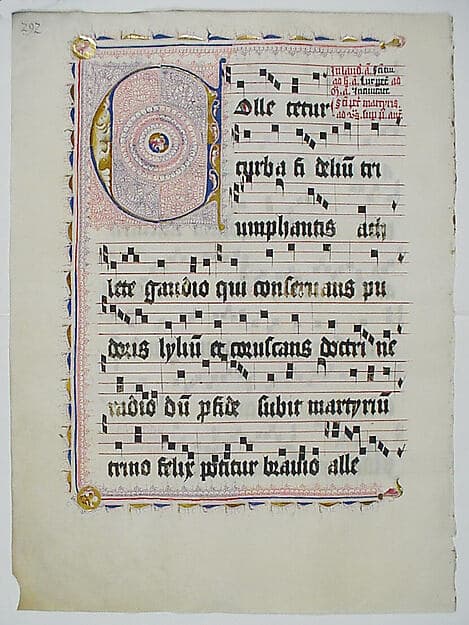 292
Colle tetur
martyris.
turba fi deliū tri
umphantis ath
lete gaudio qui conseruans pu
doris lyliū et coruscans doctri ne
radio dū p fide subit martyriū
trino felix potitur brauio alle